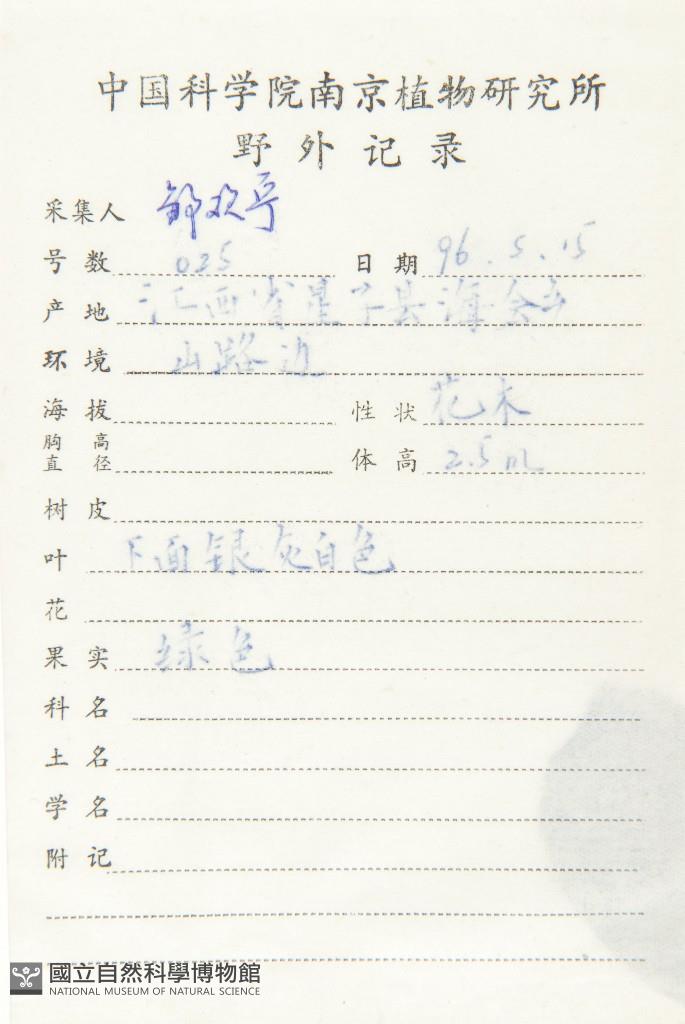 中国科学院南京植物研究所
野外记录
采集人 邹欢宁
号数 025 日期 96.5.15
产地 江西省星子县海会寺
环境 山路边
海拔 性状 花木
胸高直径 体高 2.5m
树皮
叶 下面银灰白色
花
果实 绿色
科名
土名
学名
附记
國立自然科學博物館
NATIONAL MUSEUM OF NATURAL SCIENCE